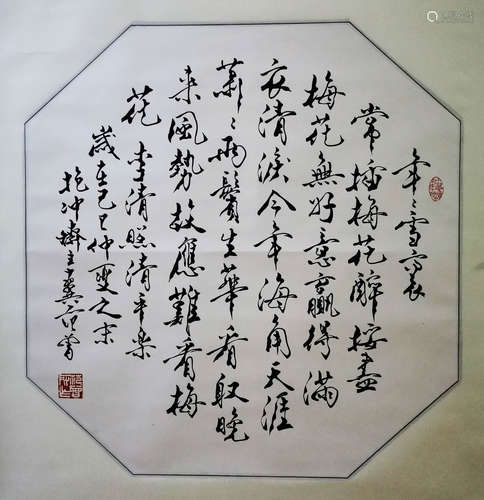 年々雪裏
常插梅花醉挼盡
梅花無好意贏得滿
衣清淚今年海角天涯
蕭々兩鬢生華看取晚
來風勢故應難看梅
花 李清照清平樂
歲在己巳仲夏之末
抱冲齋主